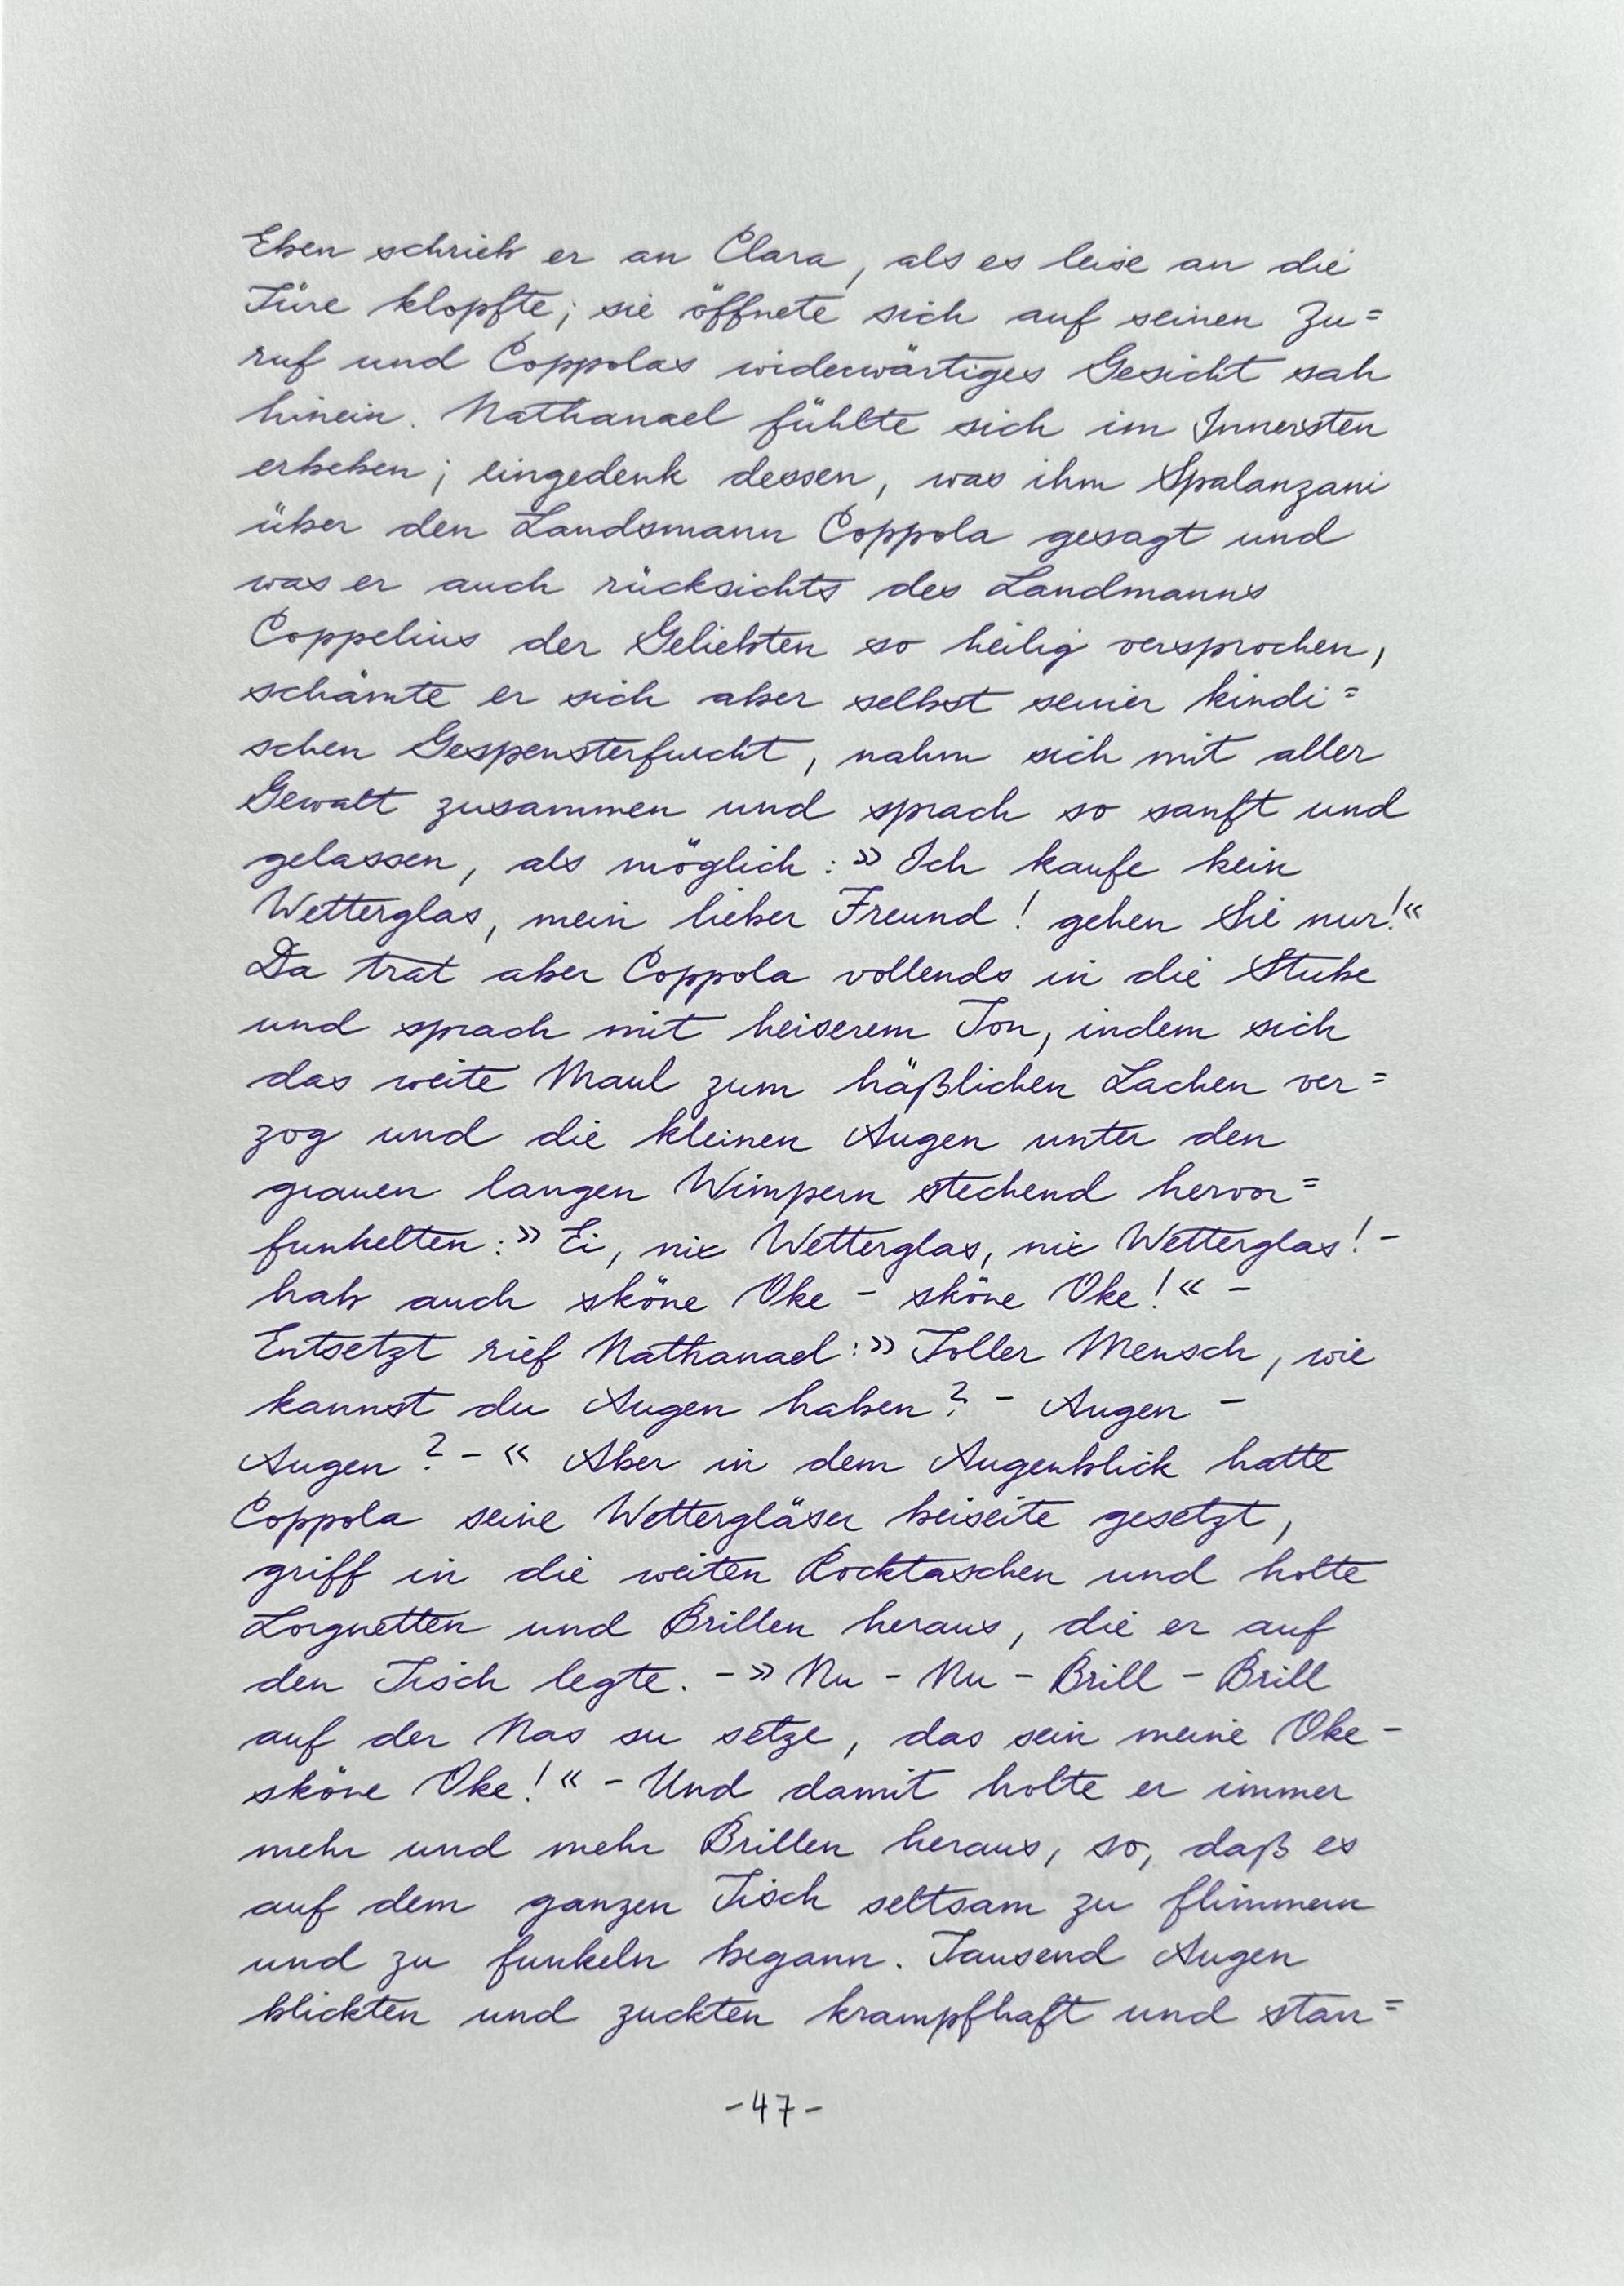 Eben schrieb er an Clara, als es leise an die
Türe klopfte; sie öffnete sich auf seinen Zu=
ruf und Coppolas widerwärtiges Gesicht sah
hinein. Nathanael fühlte sich im Innersten
erbeben; eingedenk dessen, was ihm Spalanzani
über den Landsmann Coppola gesagt und
was er auch rücksichts des Landmanns
Coppelius der Geliebten so heilig versprochen,
schämte er sich aber selbst seiner kindi=
schen Gespensterfurcht, nahm sich mit aller
Gewalt zusammen und sprach so sanft und
gelassen, als möglich: »Ich kaufe kein
Wetterglas, mein lieber Freund! gehen Sie nur!«
Da trat aber Coppola vollends in die Stube
und sprach mit heiserem Ton, indem sich
das weite Maul zum häßlichen Lachen ver=
zog und die kleinen Augen unter den
grauen langen Wimpern stechend hervor=
funkelten: »Ei, nix Wetterglas, nix Wetterglas! -
hab auch sköne Oke - sköne Oke!« -
Entsetzt rief Nathanael: »Toller Mensch, wie
kannst du Augen haben? - Augen -
Augen? - « Aber in dem Augenblick hatte
Coppola seine Wettergläser beiseite gesetzt,
griff in die weiten Rocktaschen und holte
Lorgnetten und Brillen heraus, die er auf
den Tisch legte. - »Nu - Nu - Brill - Brill
auf der Nas su setze, das sein meine Oke -
sköne Oke!« - Und damit holte er immer
mehr und mehr Brillen heraus, so, daß es
auf dem ganzen Tisch seltsam zu flimmern
und zu funkeln begann. Tausend Augen
blickten und zuckten krampfhaft und starr=
-47-